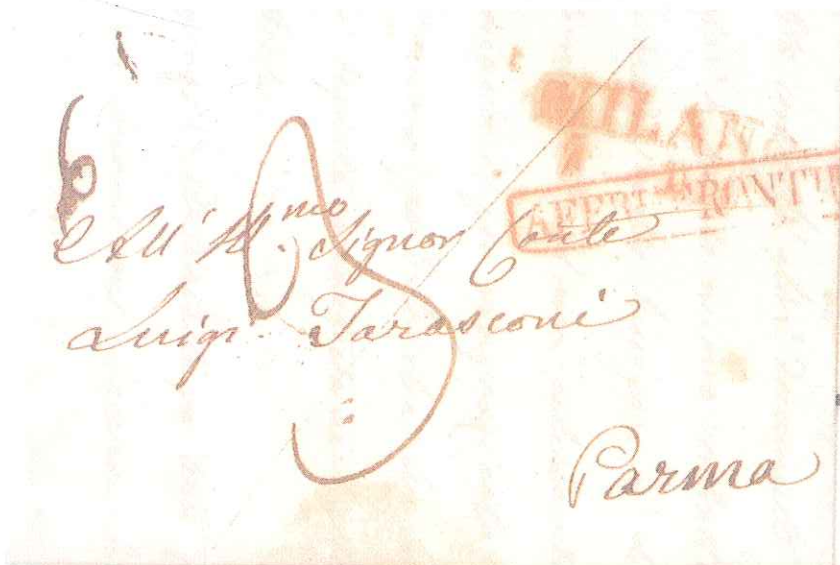 MILANO
AFFR.TA FRONTIE
All' Ill.mo Signor Conte
Luigi Tarasconi
Parma